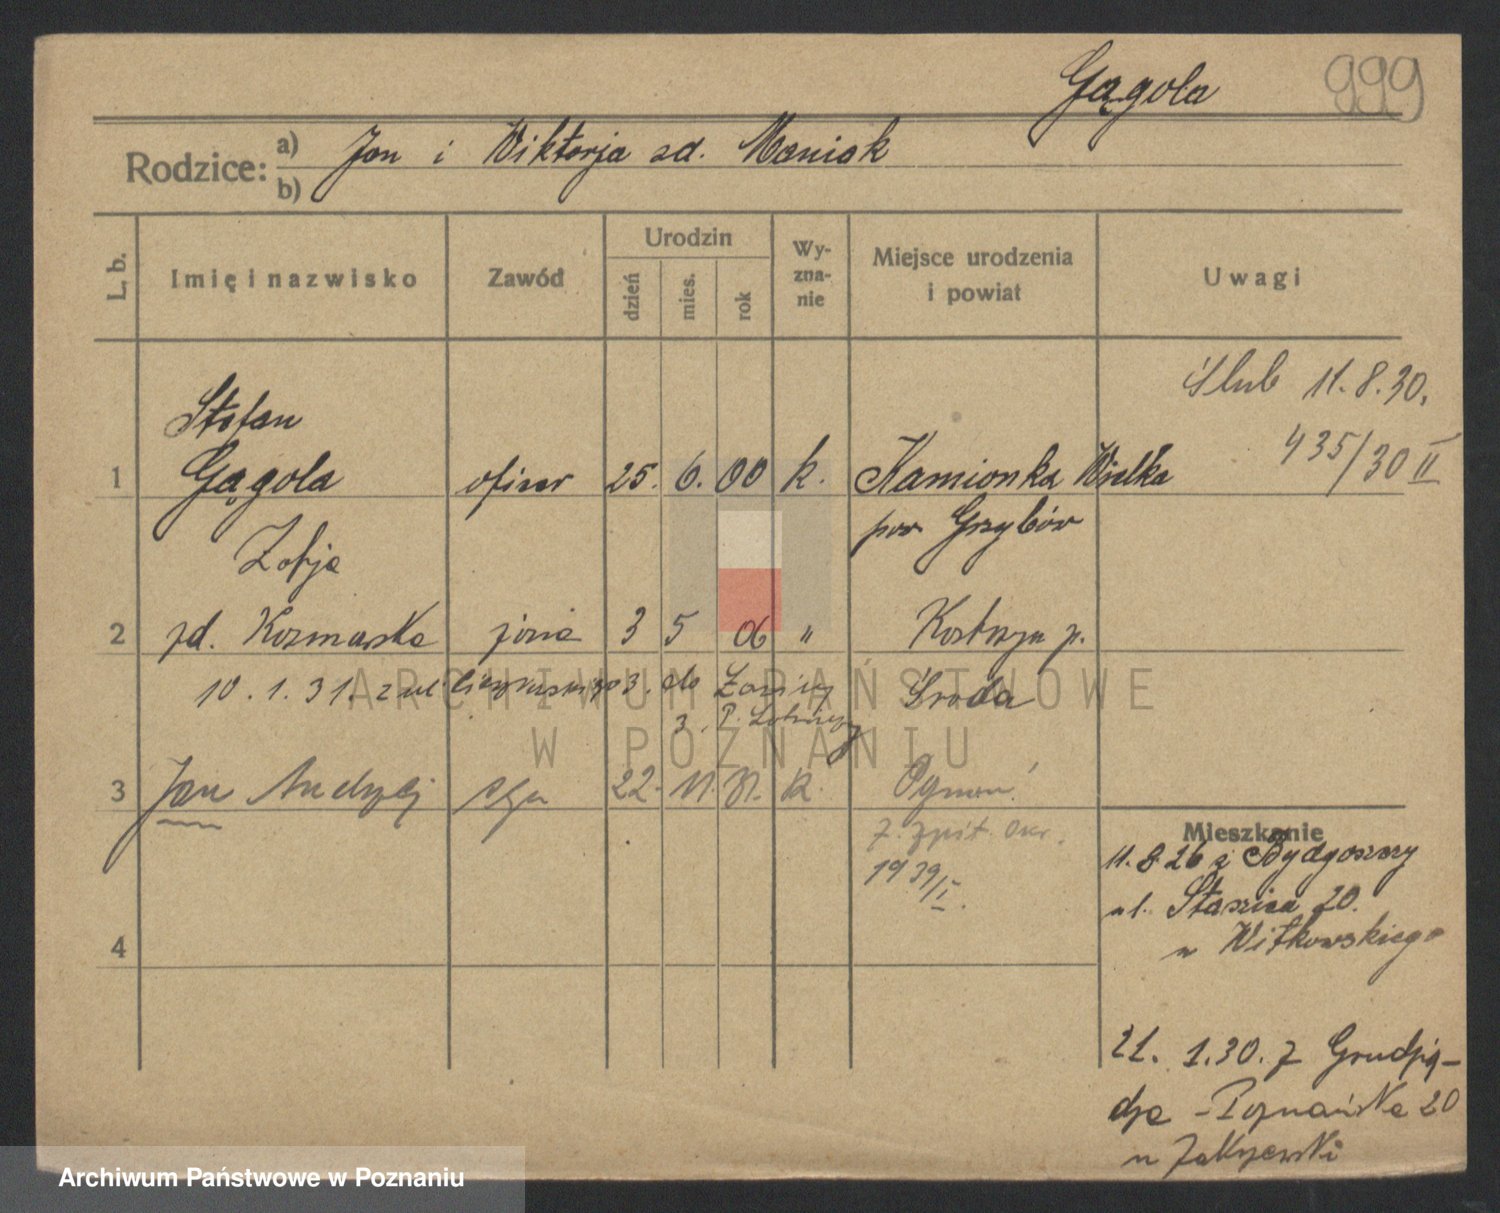 Gągola 999
Rodzice: a) Jan i Wiktorja zd. Maniak
b)
L. b. Imię i nazwisko Zawód Urodzin dzień mies. rok Wy-zna-nie Miejsce urodzenia i powiat Uwagi
Ślub 11.8.30.
435/30 II
Stefan
1 Gągola oficer 25. 6. 00 k. Kamionka Wielka
pow Grybów
Zofja
2 zd. Kozmaska żona 3 5 06 " Kostrzyn p.
10.1.31. z ul. 3. do Środa
3. P.
3 Jan Andrzej syn 22. 11. 31. k. Poznań
z. zpit. Okr.
1939/I.
Mieszkanie
11.8.26 z Bydgoszczy
ul. Staszica 20.
u Witkowskiego
4
21. 1.30. z Grudzią-
dza - Poznańska 20
u Zakrzewski
ARCHIWUM PAŃSTWOWE
W POZNANIU
Archiwum Państwowe w Poznaniu